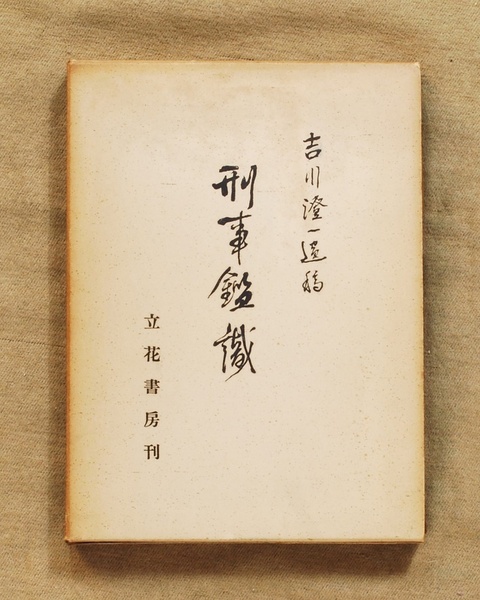 吉川澄一遺稿
刑事鑑識
立花書房刊